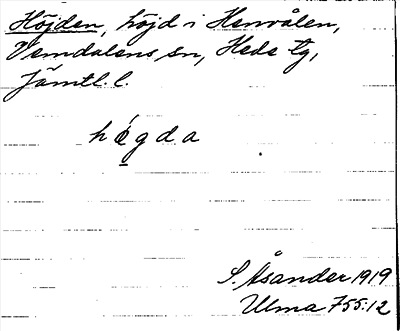 Höjden, höjd i Henvålen,
Vemdalens sn, Hede tg,
Jämtl. l.
hǿ̱gda
S. Åsander 1919
Ulma 755:12